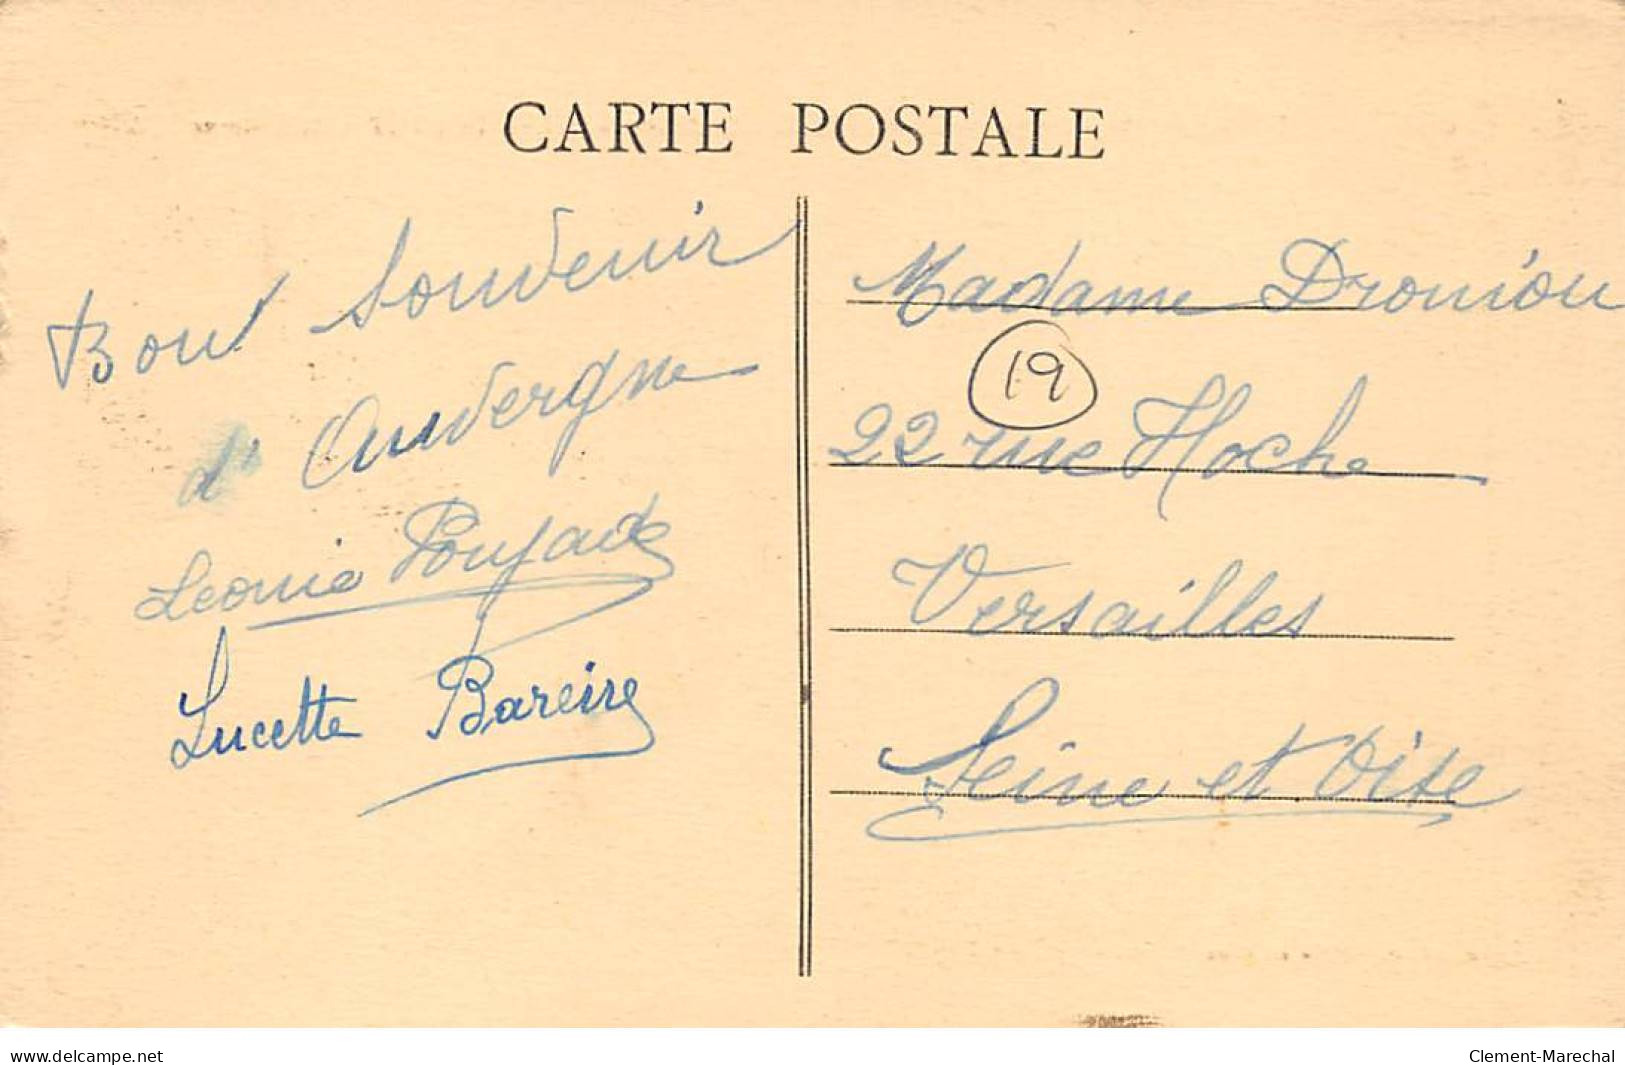 CARTE POSTALE
Bon souvenir
d'Auvergne
Leonie Poujade
Lucette Bareire
Madame Drouiou
19
22 rue Hoche
Versailles
Seine et Oise
www.delcampe.net
Clement-Marechal